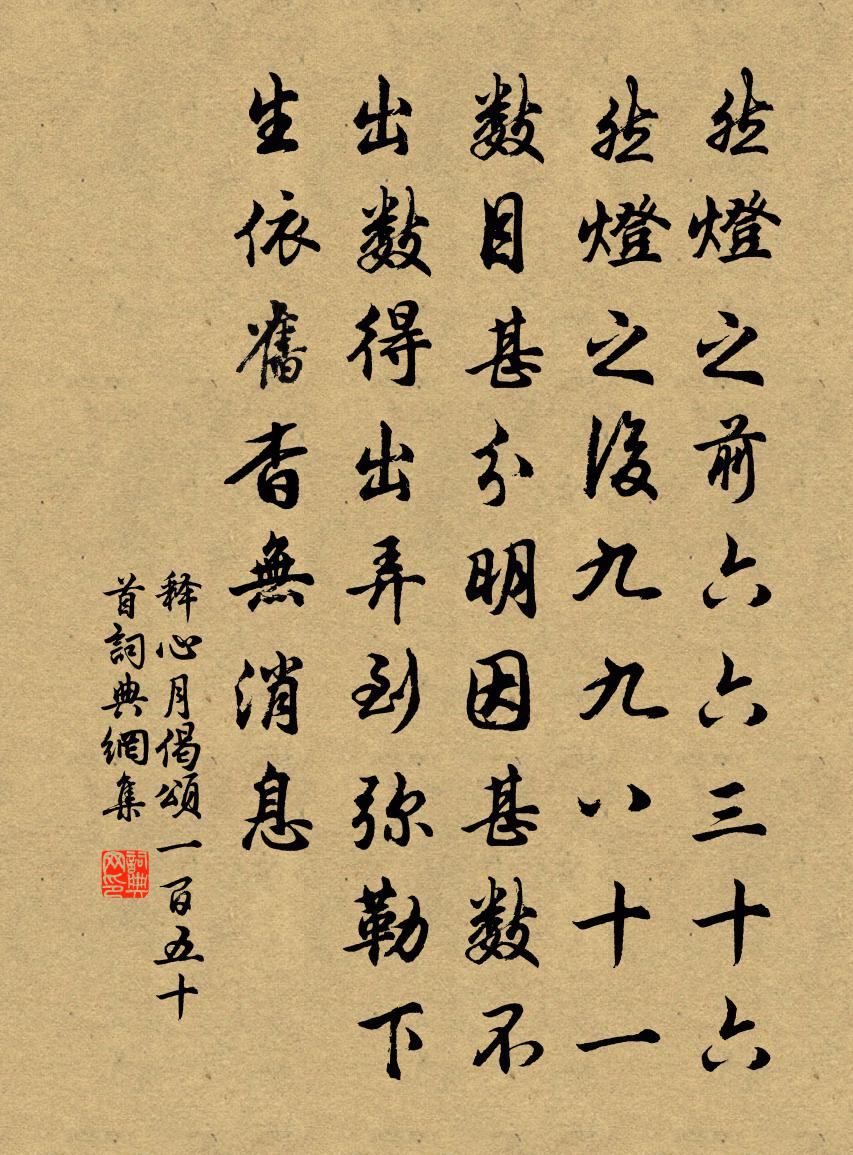 然燈之前六六三十六
然燈之後九九八十一
數目甚分明因甚數不
出數得出弄到弥勒下
生依舊杳無消息
释心月偈頌一百五十
首詞典網集
詞典网印